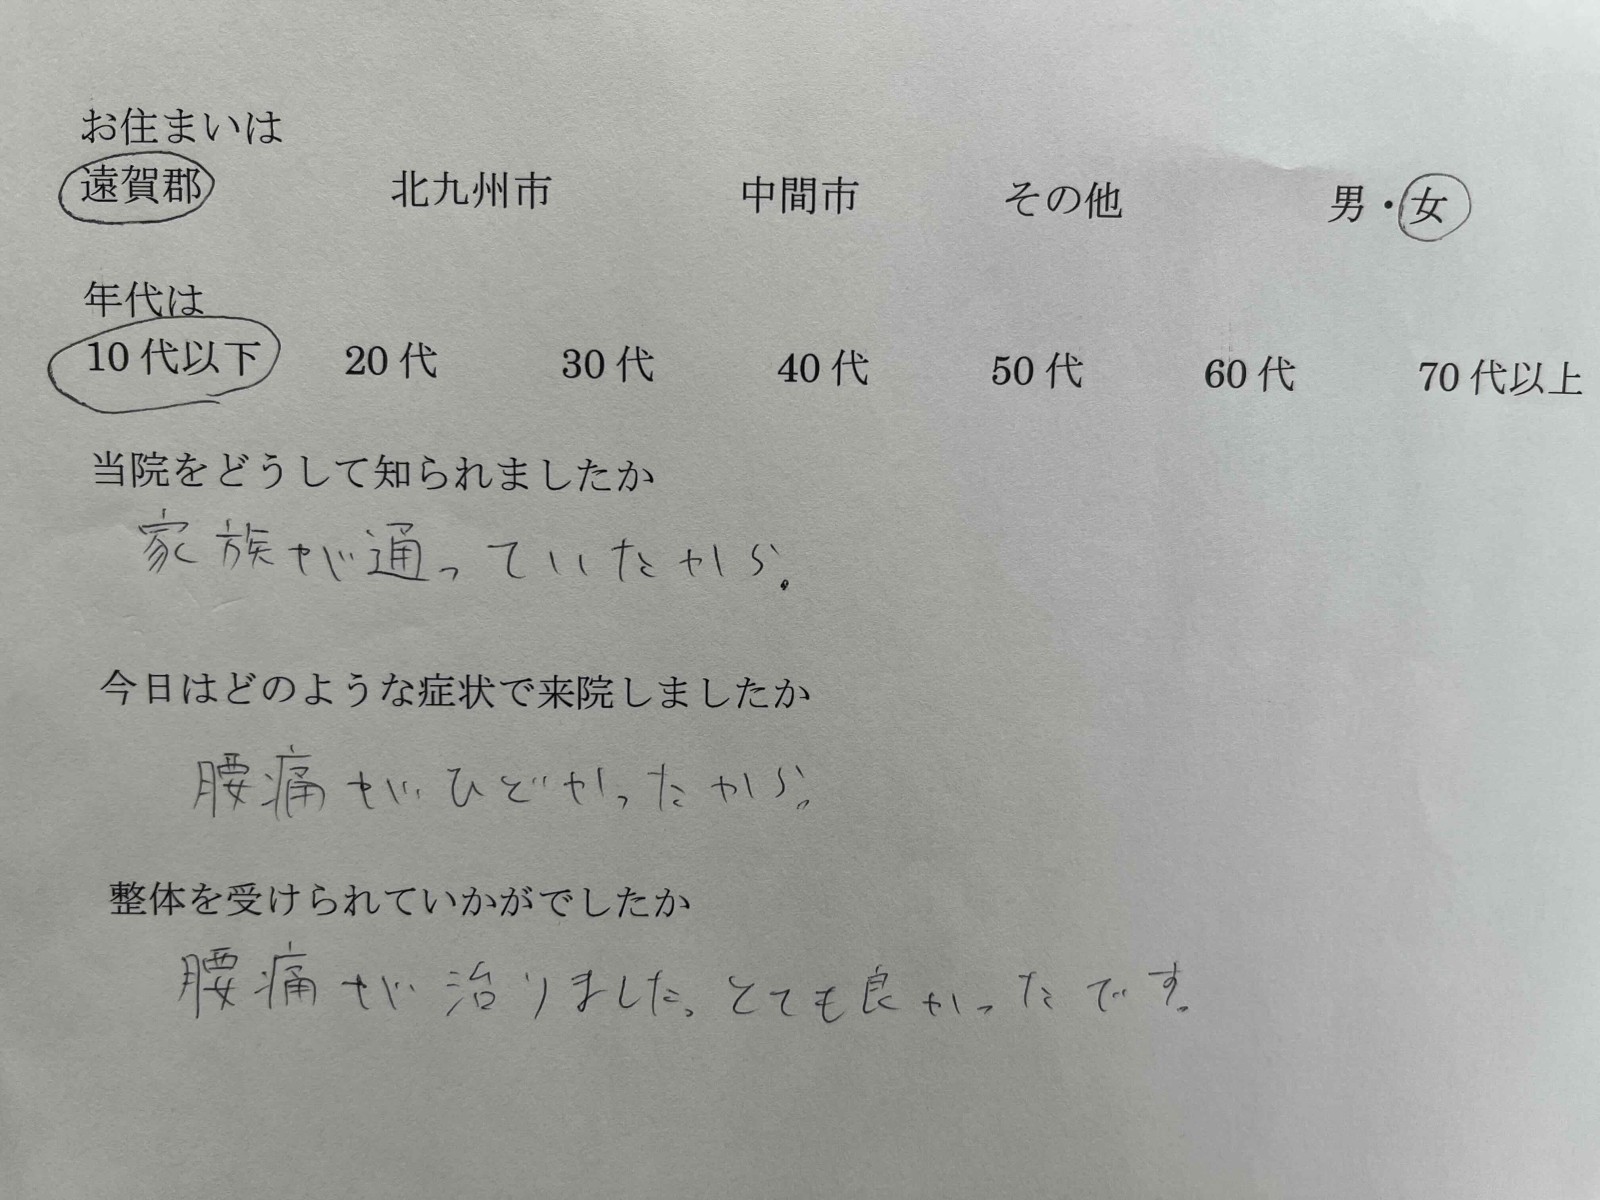 お住まいは
遠賀郡 北九州市 中間市 その他 男・女
年代は
10代以下 20代 30代 40代 50代 60代 70代以上
当院をどうして知られましたか
家族が通っていたから。
今日はどのような症状で来院しましたか
腰痛がひどかったから。
整体を受けられていかがでしたか
腰痛が治りました。とても良かったです。